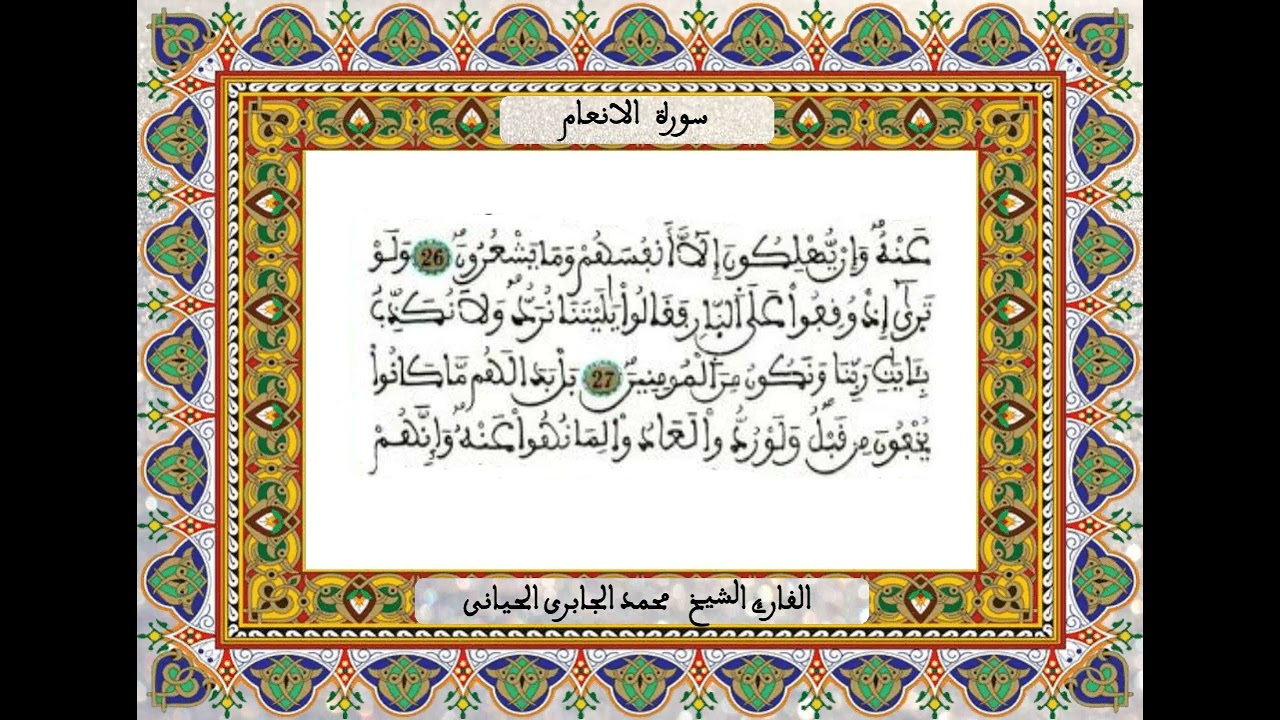 سورة الانعام
عَنْهُ وَإِنْ يُّهْلِكُونَ إِلَّآ أَنفُسَهُمْ وَمَا يَشْعُرُونَ 26 وَلَوْ
تَرَىٰٓ إِذْ وُقِفُواْ عَلَى اَ۬لنّ۪ارِ فَقَالُواْ يَٰلَيْتَنَا نُرَدُّ وَلَا نُكَذِّبُ
بِـَٔايَٰتِ رَبِّنَا وَنَكُونُ مِنَ اَ۬لْمُومِنِينَ 27 بَلْ بَدَا لَهُم مَّا كَانُواْ
يُخْفُونَ مِن قَبْلُ وَلَوْ رُدُّواْ لَعَادُواْ لِمَا نُهُواْ عَنْهُ وَإِنَّهُمْ
القارئ الشيخ محمد الجابري الحياني